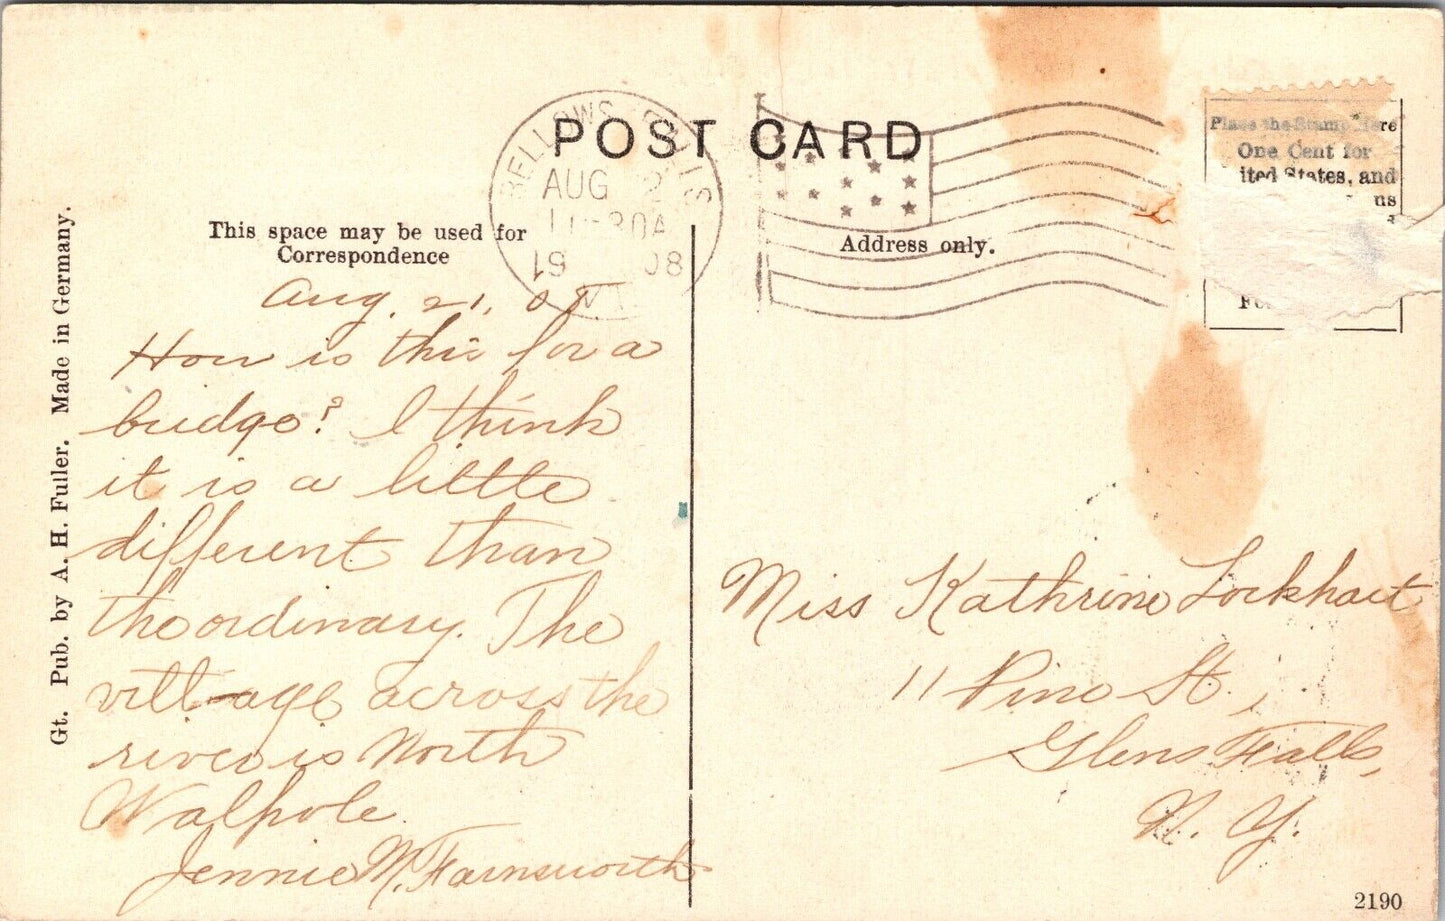 POST CARD
BELLOWS FALLS
AUG 2
11-30A
19 08
VT.
This space may be used for
Correspondence
Address only.
Place the Stamp Here
One Cent for
ited States, and
Gt. Pub. by A. H. Fuller. Made in Germany.
Aug. 21, 08.
How is this for a
bridge? I think
it is a little
different than
the ordinary. The
village across the
river is North
Walpole.
Jennie M. Farnsworth
Miss Kathrine Lockhart
11 Pine St.,
Glens Falls,
N. Y.
2190